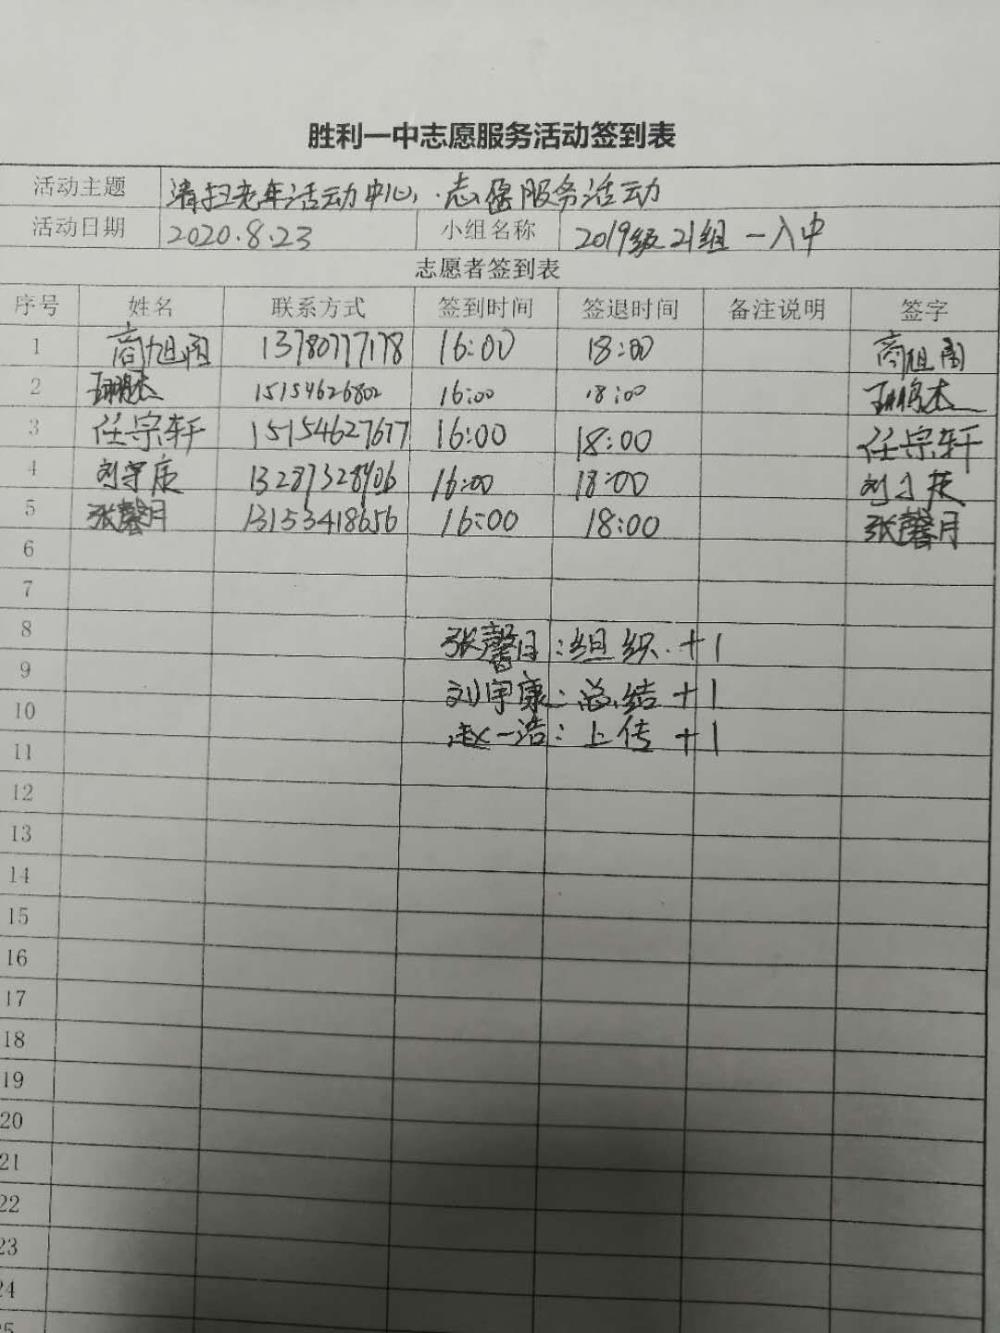 胜利一中志愿服务活动签到表
活动主题 清扫老年活动中心，志愿服务活动
活动日期 2020.8.23 小组名称 2019级21组一入中
志愿者签到表
序号 姓名 联系方式 签到时间 签退时间 备注说明 签字
1 商旭 13780777178 16:00 18:00 商旭
2 15154626802 16:00 18:00
3 任宗轩 15154627677 16:00 18:00 任宗轩
4 刘宇康 13287328906 16:00 18:00 刘宇康
5 张馨月 13153418656 16:00 18:00 张馨月
6
7
8 张馨月：组织+1
9
10 刘宇康：总结+1
11 赵一浩：上传+1
12
13
14
15
16
17
18
19
20
21
22
23
24
25